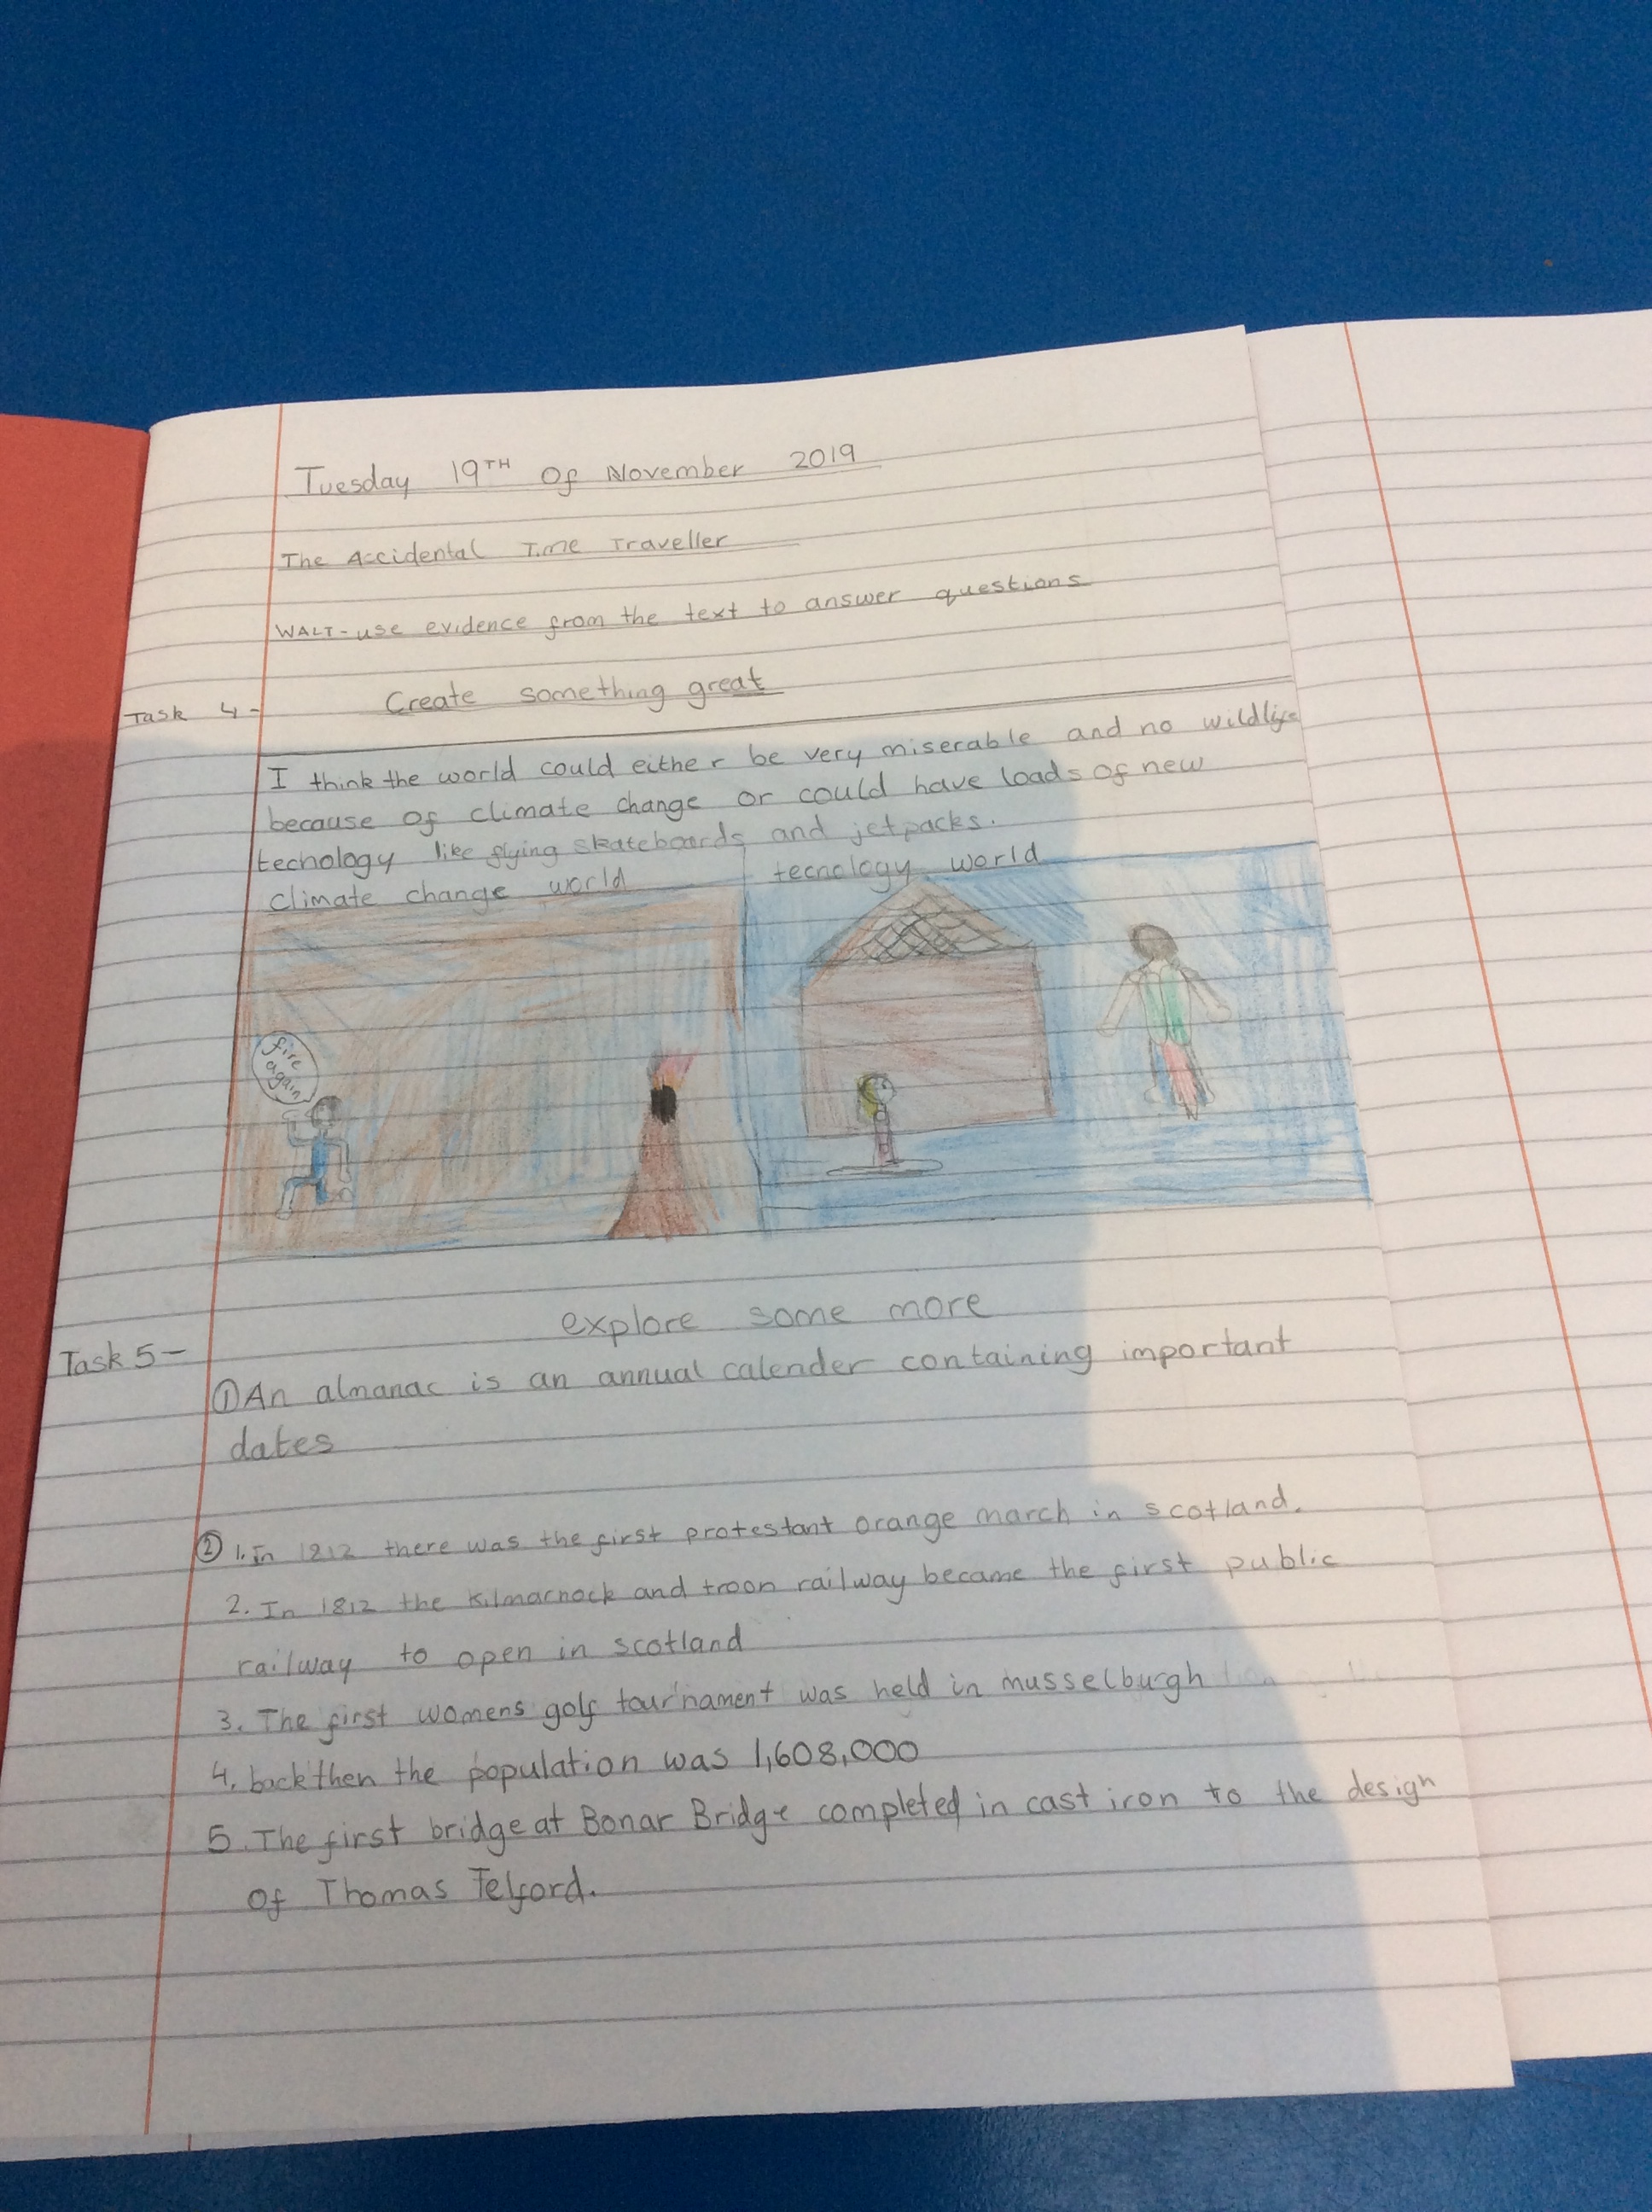 Tuesday 19TH Of November 2019
The Accidental Time Traveller
WALT - use evidence from the text to answer questions
Task 4 - Create something great
I think the world could either be very miserable and no wildlife
because of climate change or could have loads of new
techology like flying skateboards and jetpacks.
climate change world tecnology world
fire
again
explore some more
Task 5 -
① An almanac is an annual calender containing important
dates
② 1. In 1212 there was the first protestant orange march in scotland.
2. In 1812 the Kilmarnock and troon railway became the first public
railway to open in scotland
3. The first womens golf tournament was held in musselburgh
4. back then the population was 1,608,000
5. The first bridge at Bonar Bridge completed in cast iron to the design
of Thomas Telford.